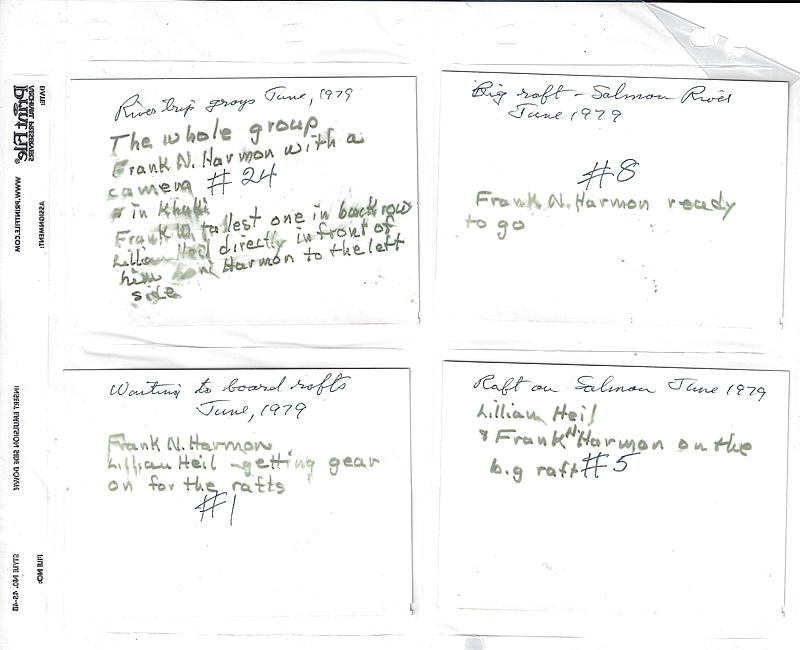 DATE:
ARCHIVAL PRESERVERS
Print File®
WWW.PRINTFILE.COM
ASSIGNMENT:
INSERT EMULSION SIDE DOWN
FILE NO:
STYLE NO.
River trip group June, 1979
The whole group
Frank N. Harmon with a
camera #24
& in Khaki
Frank tallest one in back row
Lillian Heil directly in front of
him Harmon to the left
side
Big raft - Salmon River
June 1979
#8
Frank N. Harmon ready
to go
Waiting to board rafts
June, 1979
Frank N. Harmon
Lillian Heil - getting gear
on for the rafts
#1
Raft on Salmon June 1979
Lillian Heil
& Frank N Harmon on the
big raft #5